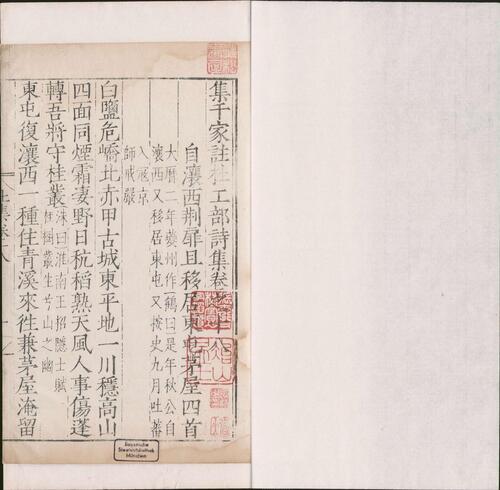 集千家註杜工部詩集卷之十八
自瀼西荆扉且移居東屯茅屋四首
大曆二年夔州作鶴曰是年秋公自
瀼西又移居東屯又按史九月吐蕃
入寇京
師戒嚴
白鹽危嶠北赤甲古城東平地一川穩高山
四面同煙霜淒野日秔稻熟天風人事傷蓬
轉吾將守桂叢
洙曰淮南王招隱士賦
桂樹叢生兮山之幽
東屯復瀼西一種住青溪來徃兼茅屋淹留
Bayerische
Staatsbibliothek
München